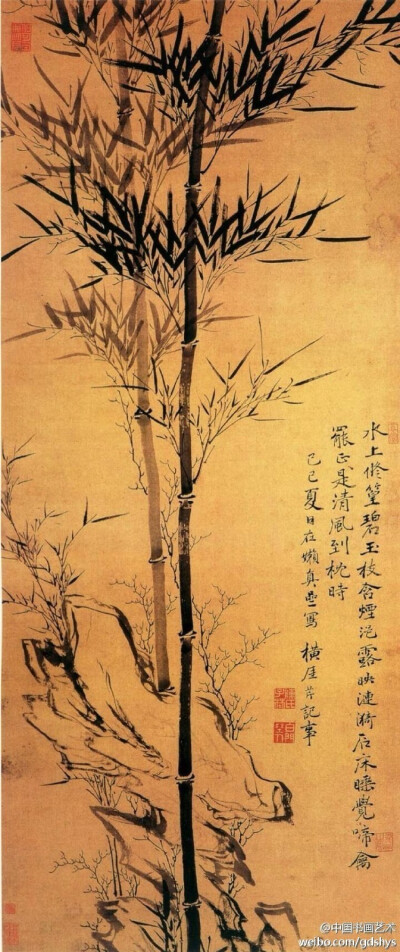 水上修篁碧玉枝含煙浥露映漣漪石床睡覺啼禽
罷正是清風到枕時
己巳夏日在嬾真寫 橫厓芹記事
@中国书画艺术
weibo.com/gdshys